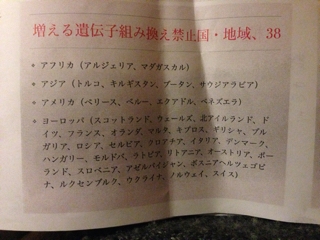 増える遺伝子組み換え禁止国・地域、38
* アフリカ（アルジェリア、マダガスカル）
* アジア（トルコ、キルギスタン、ブータン、サウジアラビア）
* アメリカ（ベリーズ、ペルー、エクアドル、ベネズエラ）
* ヨーロッパ（スコットランド、ウェールズ、北アイルランド、ド
イツ、フランス、オランダ、マルタ、キプロス、ギリシャ、ブル
ガリア、ロシア、セルビア、クロアチア、イタリア、デンマーク、
ハンガリー、モルドバ、ラトビア、リトアニア、オーストリア、ポー
ランド、スロベニア、アゼルバイジャン、ボスニアヘルツェゴビ
ナ、ルクセンブルク、ウクライナ、ノルウェイ、スイス）